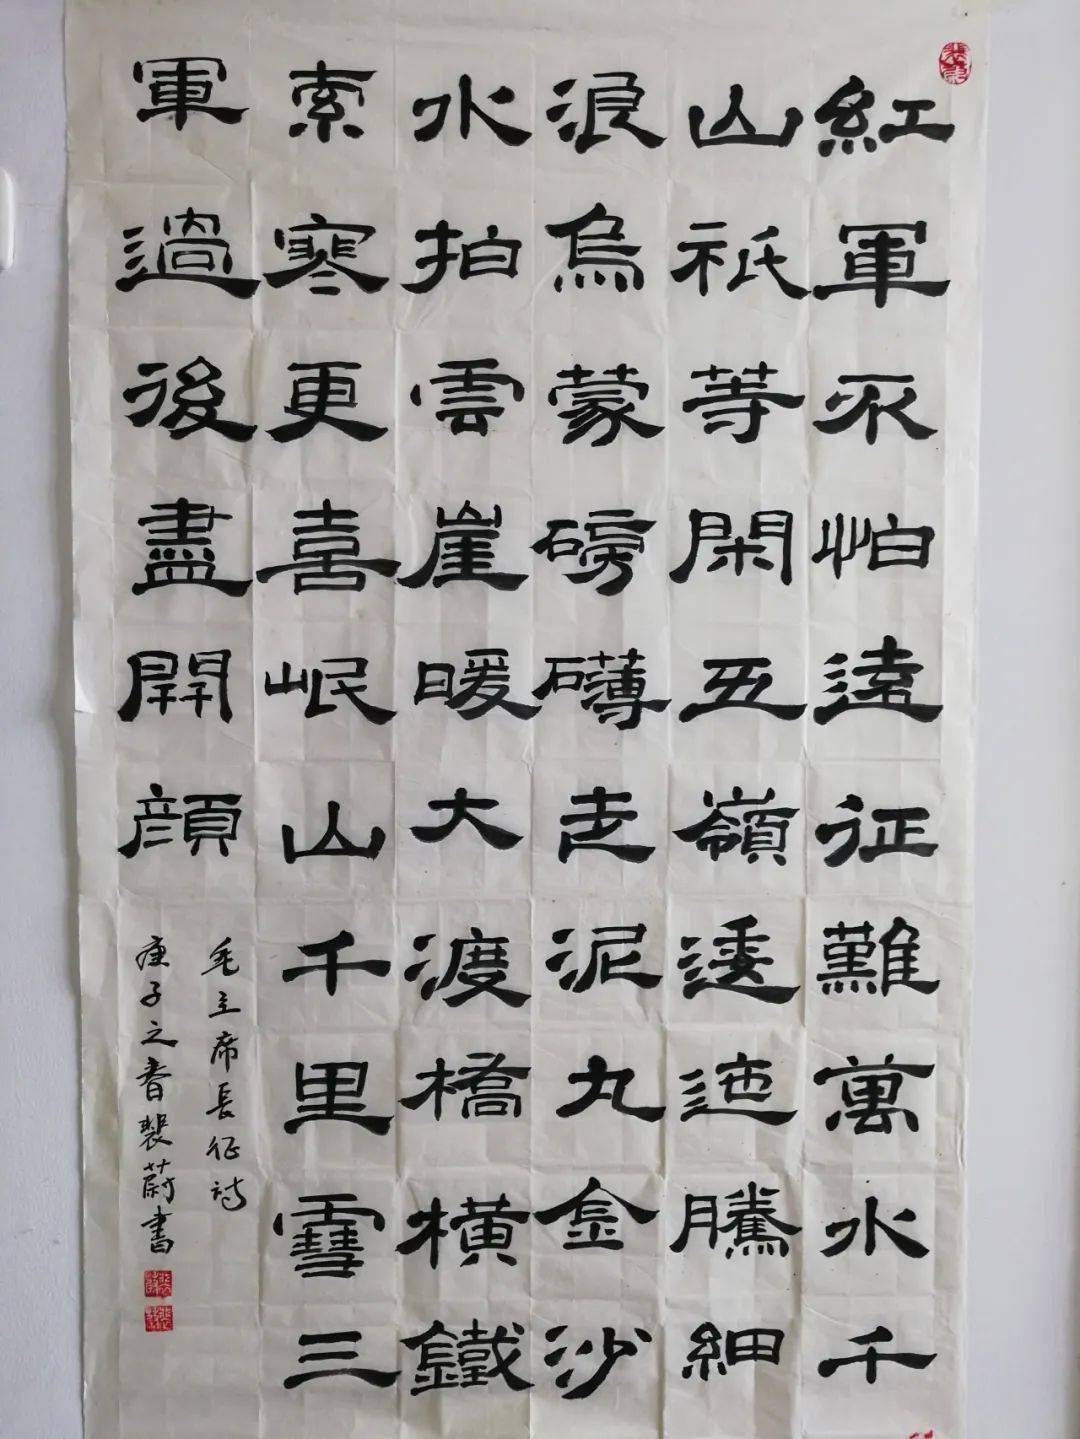 紅軍不怕遠征難萬水千
山祇等閑五嶺逶迤騰細
浪烏蒙磅礴走泥丸金沙
水拍雲崖暖大渡橋橫鐵
索寒更喜岷山千里雪三
軍過後盡開顔
毛主席長征詩
庚子之春裴蔚書